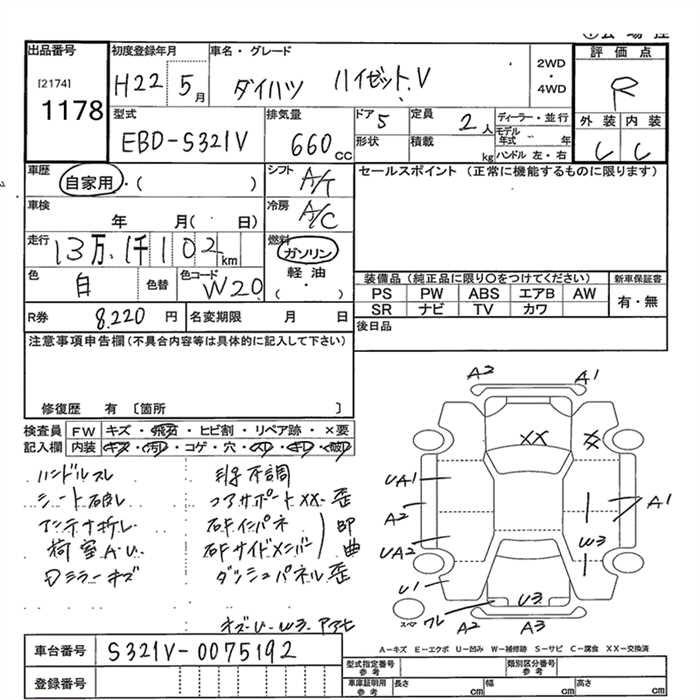 出品番号
[2174]
1178
初度登録年月
H22 5月
車名・グレード
ダイハツ ハイゼット.V
2WD
・
4WD
評価点
R
外装 内装
C C
型式
EBD-S321V
排気量
660cc
ドア
5
形状
定員
2人
積載
kg
ディーラー・並行
モデル年式 年
ハンドル 左・右
車歴
自家用・( )
シフト
A/T
セールスポイント (正常に機能するものに限ります)
車検
年 月( ・ 日)
冷房
A/C
走行
13万.1千102km
燃料
ガソリン
軽油
( ・ )
色
白
色替
色コード
W20
装備品(純正品に限り○をつけてください)
新車保証書
PS PW ABS エアB AW
有・無
SR ナビ TV カワ
R券 8,220円
名変期限 月 日
後日品
注意事項申告欄(不具合内容等は具体的に記入して下さい)
修復歴 有 〔箇所 〕
検査員記入欄
FW キズ・飛石・ヒビ割・リペア跡・×要
内装 キズ・汚れ・コゲ・穴・スレ・キレ・破れ
ハンドルスレ
シート破れ
アンテナ折れ
荷室A.U
Dミラーキズ
コアサポートXX-歪
右Fインパネ
右Fサイドメンバー
ダッシュパネル歪
キズ-U-W3-アヤセ
A2 A1
XX
UA1
A2
UA2
U1
A1
W3
U3
ワレ
A2 A3
A－キズ E－エクボ U－凹み W－補修跡 S－サビ C－腐食 XX－交換済
車台番号
S321V-0075192
登録番号
型式指定番号 参考
類別区分番号 参考
車庫証明用 参考
長さ cm
幅 cm
高さ cm